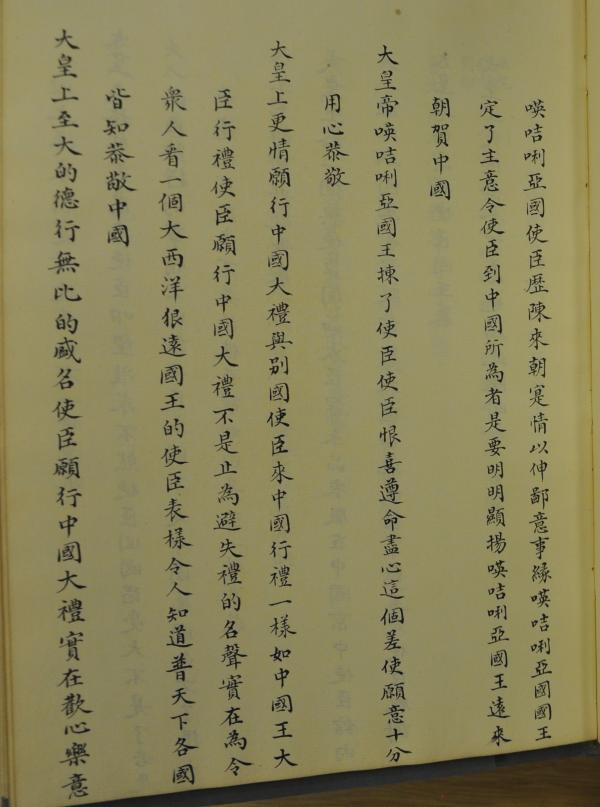 暎咭唎亞國使臣歷陳來朝寔情以伸鄙意事緣暎咭唎亞國國王
定了主意令使臣到中國所為者是要明明顯揚暎咭唎亞國王遠來
朝賀中國
大皇帝暎咭唎亞國王揀了使臣使臣恨喜遵命盡心這個差使願意十分
用心恭敬
大皇上更情願行中國大禮與別國使臣來中國行禮一樣如中國王大
臣行禮使臣願行中國大禮不是止為避失禮的名聲實在為令
衆人看一個大西洋狠遠國王的使臣表樣令人知道普天下各國
皆知恭敬中國
大皇上至大的德行無比的威名使臣願行中國大禮實在歡心樂意